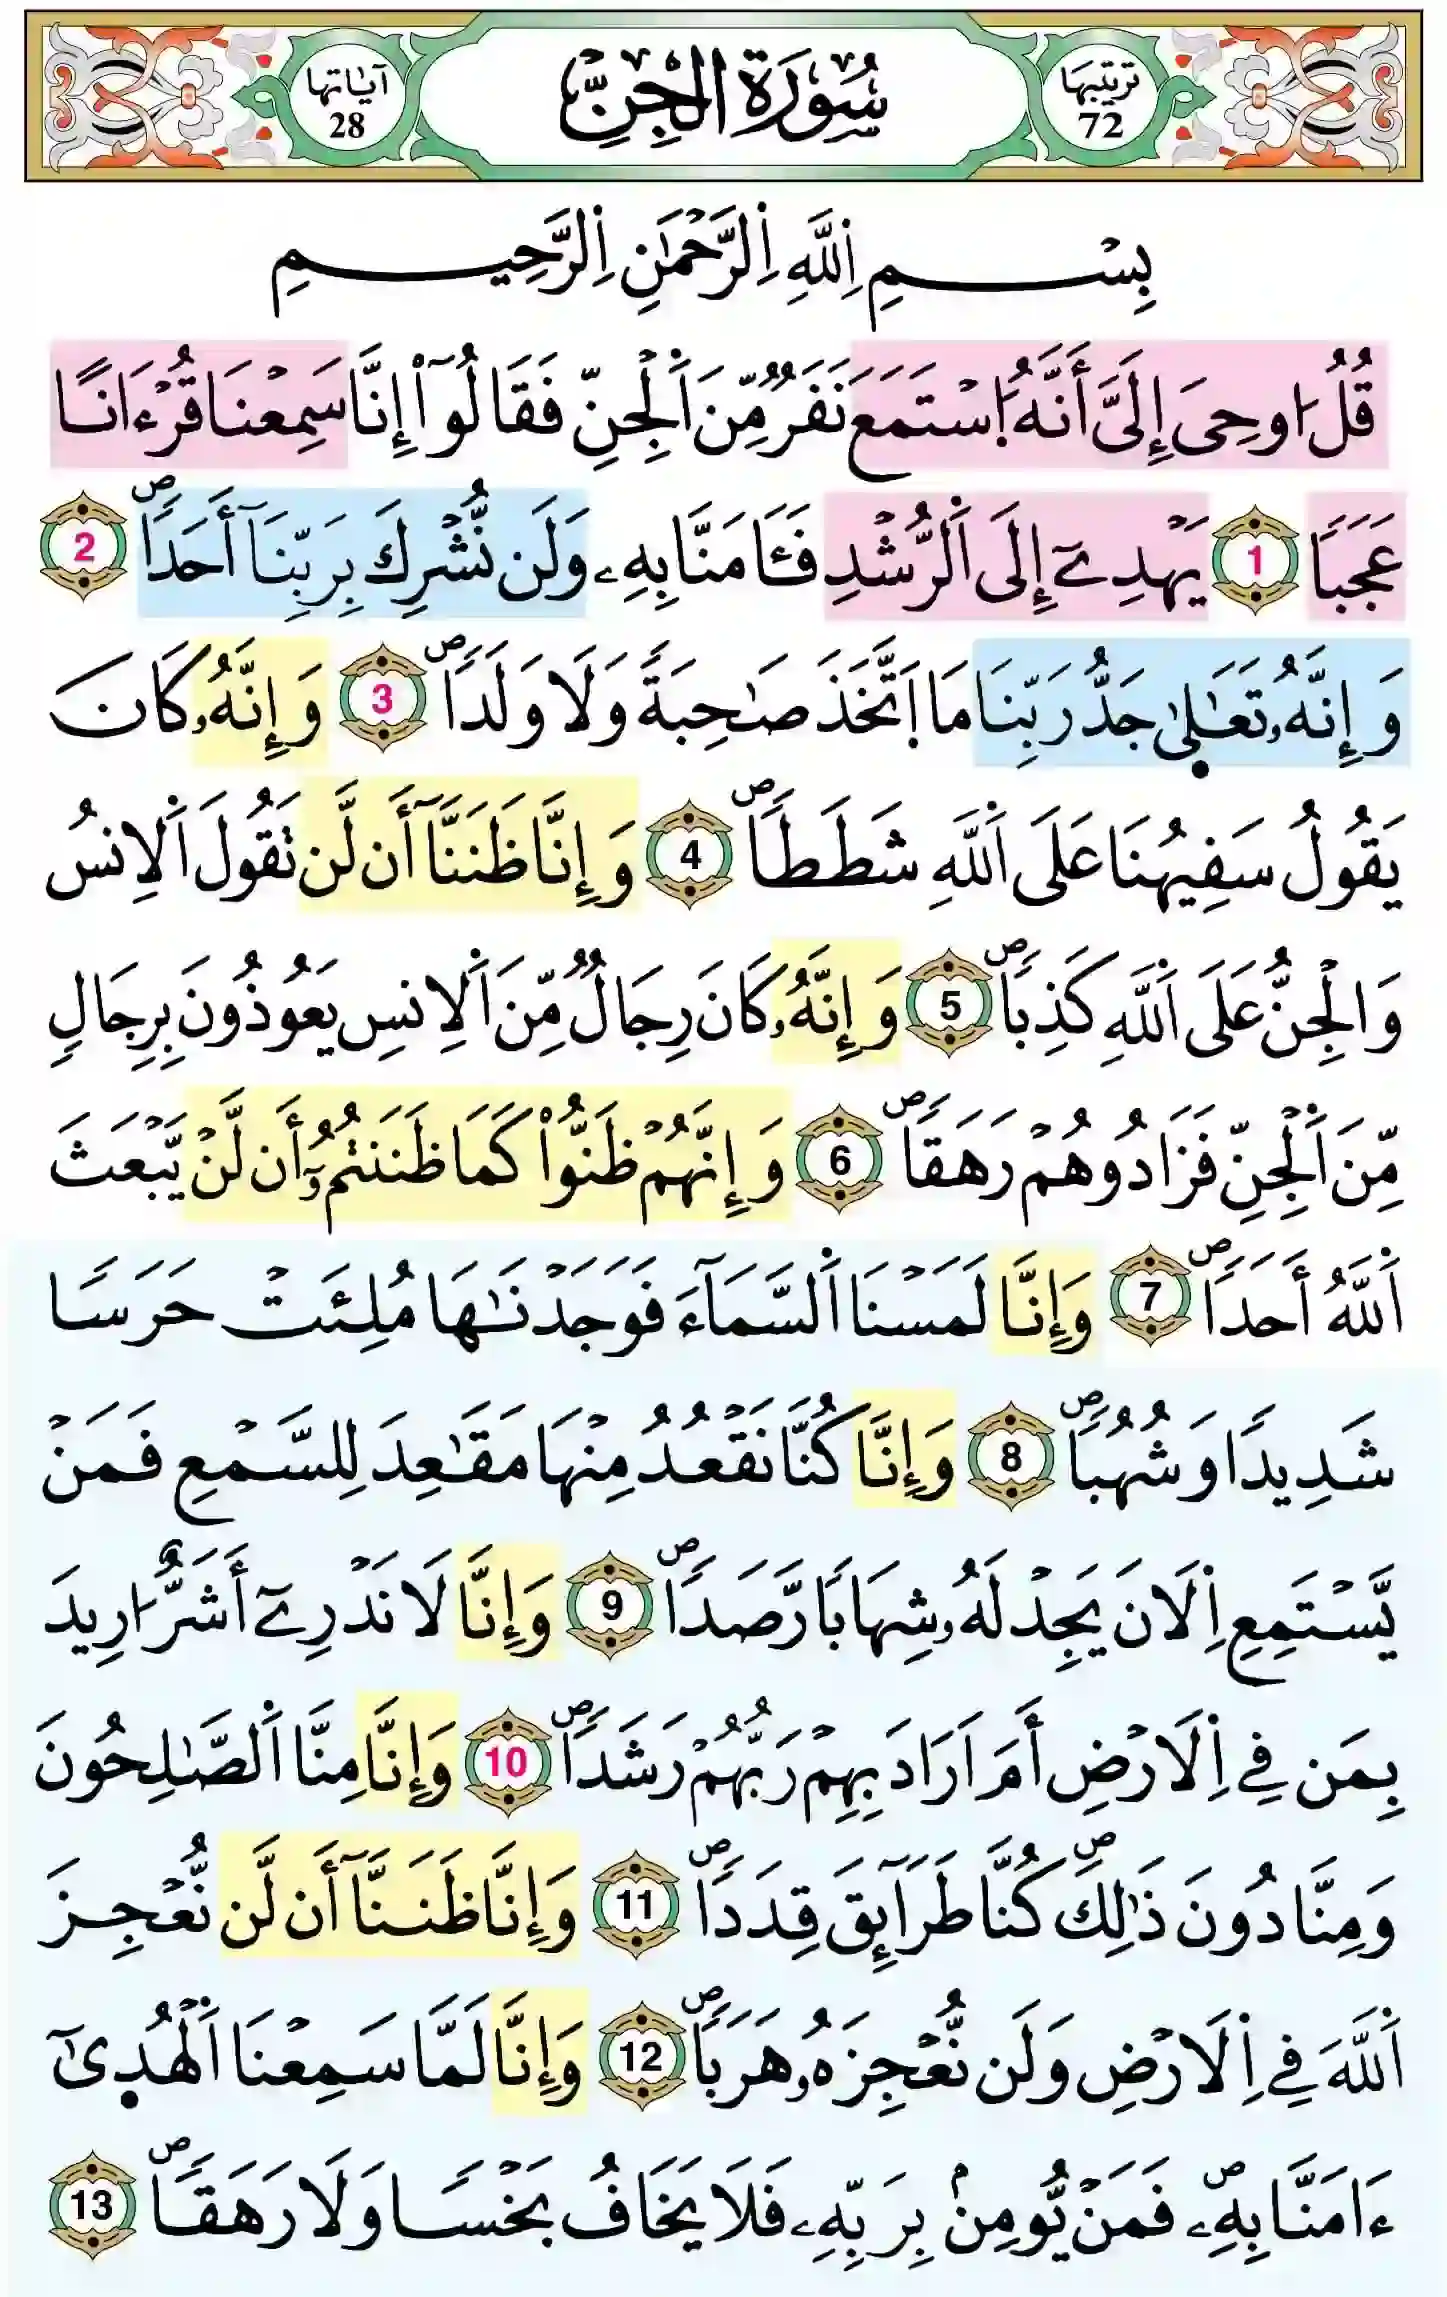 ترتيبها
72
سُورَةُ الجِنِّ
آيَاتها
28
بِسْمِ اِ۬للَّهِ اِ۬لرَّحْمَٰنِ اِ۬لرَّحِيمِ
قُلُ ا۟وحِىَ إِلَىَّ أَنَّهُ اُ۪سْتَمَعَ نَفَرٞ مِّنَ اَ۬لْجِنِّ فَقَالُوٓاْ إِنَّا سَمِعْنَا قُرْءَاناً
عَجَباٗ 1 يَهْدِےٓ إِلَى اَ۬لرُّشْدِ فَـَٔامَنَّا بِهِۦ وَلَن نُّشْرِكَ بِرَبِّنَآ أَحَداٗۖ 2
وَإِنَّهُۥ تَعَٰل۪ىٰ جَدُّ رَبِّنَا مَا اَ۪تَّخَذَ صَٰحِبَةٗ وَلَا وَلَداٗۖ 3 وَإِنَّهُۥ كَانَ
يَقُولُ سَفِيهُنَا عَلَى اَ۬للَّهِ شَطَطاٗۖ 4 وَإِنَّا ظَنَنَّآ أَن لَّن تَقُولَ اَ۬لِانسُ
وَالْجِنُّ عَلَى اَ۬للَّهِ كَذِباٗۖ 5 وَإِنَّهُۥ كَانَ رِجَالٞ مِّنَ اَ۬لِانسِ يَعُوذُونَ بِرِجَالٖ
مِّنَ اَ۬لْجِنِّ فَزَادُوهُمْ رَهَقاٗۖ 6 وَإِنَّهُمْ ظَنُّواْ كَمَا ظَنَنتُمُۥٓ أَن لَّنْ يَّبْعَثَ
اَ۬للَّهُ أَحَداٗۖ 7 وَإِنَّا لَمَسْنَا اَ۬لسَّمَآءَ فَوَجَدْنَٰهَا مُلِئَتْ حَرَساٗ
شَدِيداٗ وَشُهُباٗۖ 8 وَإِنَّا كُنَّا نَقْعُدُ مِنْهَا مَقَٰعِدَ لِلسَّمْعِ فَمَنْ
يَّسْتَمِعِ اِ۬لَانَ يَجِدْ لَهُۥ شِهَاباٗ رَّصَداٗۖ 9 وَإِنَّا لَا نَدْرِےٓ أَشَرٌّ ا۟رِيدَ
بِمَن فِے اِ۬لَارْضِ أَمَ اَرَادَ بِهِمْ رَبُّهُمْ رَشَداٗۖ 10 وَإِنَّا مِنَّا اَ۬لصَّٰلِحُونَ
وَمِنَّا دُونَ ذَٰلِكَۖ كُنَّا طَرَآئِقَ قِدَداٗۖ 11 وَإِنَّا ظَنَنَّآ أَن لَّن نُّعْجِزَ
اَ۬للَّهَ فِے اِ۬لَارْضِ وَلَن نُّعْجِزَهُۥ هَرَباٗۖ 12 وَإِنَّا لَمَّا سَمِعْنَا اَ۬لْهُد۪ىٰٓ
ءَامَنَّا بِهِۦۖ فَمَنْ يُّومِنۢ بِرَبِّهِۦ فَلَا يَخَافُ بَخْساٗ وَلَا رَهَقاٗۖ 13